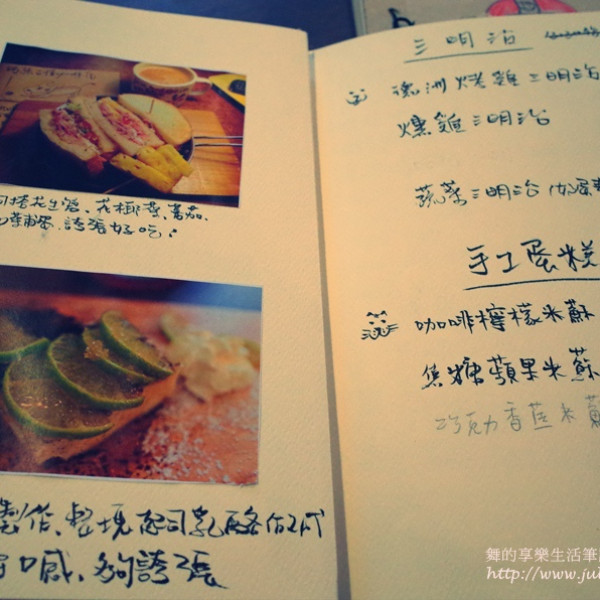 搭花生醬、花椰菜、蕃茄、
蛋、誇張好吃!
製作、整塊起司乳酪
口感、夠誇張
三明治
德州烤雞三明治
燻雞三明治
蔬菜三明治
手工蛋糕
咖啡檸檬米蘇
焦糖蘋果米蘇
巧克力香蕉米蘇
舞的享樂生活筆
http://www.ju